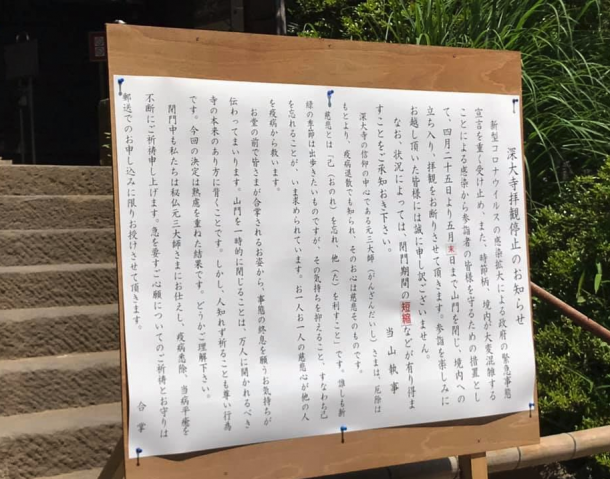 深大寺拝観停止のお知らせ
新型コロナウイルスの感染拡大による政府の緊急事態
宣言を重く受け止め、また、時節柄、境内が大変混雑する
ことによる感染から参詣者の皆様を守るための措置とし
て、四月二十五日より五月末日まで山門を閉じ、境内への
立ち入り、拝観をお断りさせて頂きます。参詣を楽しみに
お越し頂いた皆様には誠に申し訳ございません。
なお、状況によっては、閉門期間の短縮などが有り得ま
すことをご承知おき下さい。
当山執事
深大寺の信仰の中心である元三大師(がんざんだいし)さまは、厄除は
もとより、疫病退散でも知られ、そのお心は慈悲そのものです。
慈悲とは「己(おのれ)を忘れ、他(た)を利すこと」です。誰しも新
緑の季節は出歩きたいものですが、その気持ちを抑えること、すなわち己
を忘れることが、いま求められています。お一人お一人の慈悲心が他の人
を疫病から救います。
お堂の前で皆さまが合掌されるお姿から、事態の終息を願うお気持ちが
伝わってまいります。山門を一時的に閉じることは、万人に開かれるべき
寺の本来のあり方に背くことです。しかし、人知れず祈ることも尊い行為
です。今回の決定は熟慮を重ねた結果です。どうかご理解下さい。
閉門中も私たちは秘仏元三大師さまにお仕えし、疫病悉除、当病平癒を
不断にご祈祷申し上げます。急を要すご心願についてのご祈祷とお守りは
郵送でのお申し込みに限りお授けさせて頂きます。
合掌